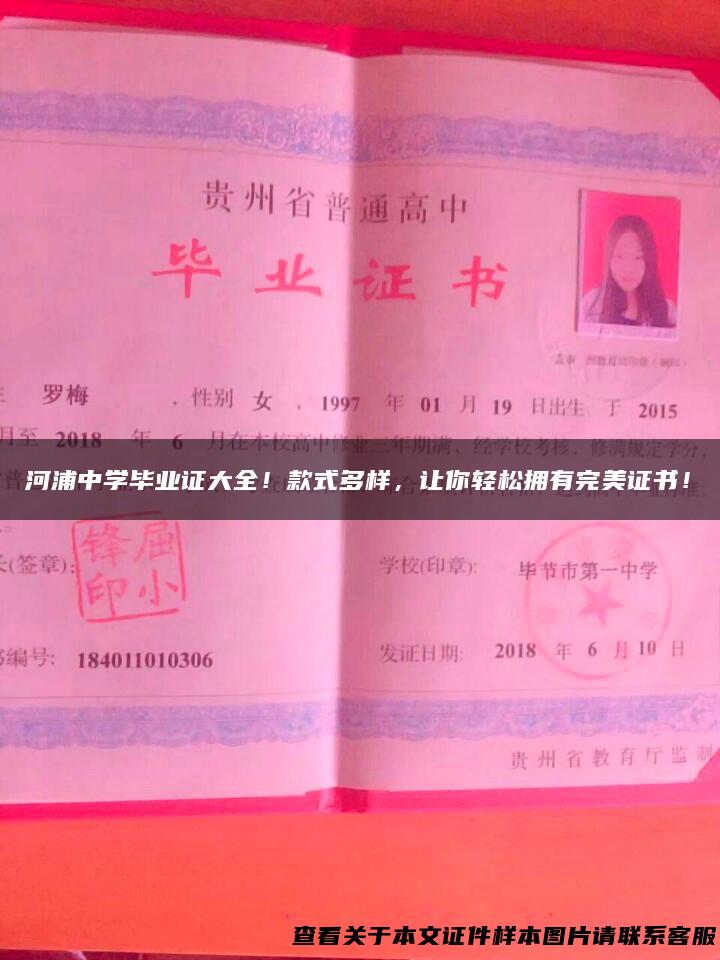 贵州省普通高中
毕业证书
罗梅 ,性别 女 ,1997 年 01 月 19 日出生、于 2015
月至 2018 年 6 月在本校高中修业三年期满,经学校考核,修满规定学分,
河浦中学毕业证大全!款式多样,让你轻松拥有完美证书!
(签章):
屈小锋印
学校(印章): 毕节市第一中学
编号: 184011010306
发证日期: 2018 年 6 月 10 日
贵州省教育厅监制
查看关于本文证件样本图片请联系客服